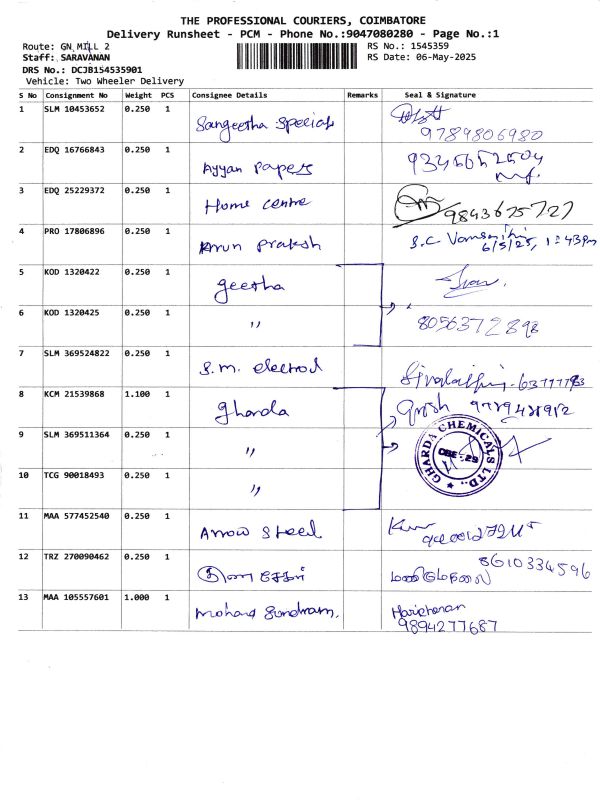 THE PROFESSIONAL COURIERS, COIMBATORE
Delivery Runsheet - PCM - Phone No.:9047080280 - Page No.:1
Route: GN MILL 2
RS No.: 1545359
Staff: SARAVANAN
RS Date: 06-May-2025
DRS No.: DCJB154535901
Vehicle: Two Wheeler Delivery
S No Consignment No Weight PCS Consignee Details Remarks Seal & Signature
1 SLM 10453652 0.250 1 Sangeetha Specials
9789806980
2 EDQ 16766843 0.250 1 Ayyan Papers
3 EDQ 25229372 0.250 1 Home centre 9843675727
4 PRO 17806896 0.250 1 Arun prakash S.C
6/5/25, 1:43pm
5 KOD 1320422 0.250 1 geetha
6 KOD 1320425 0.250 1 " 8056372898
7 SLM 369524822 0.250 1 S.m. electrod
8 KCM 21539868 1.100 1 gharda 9789428912
9 SLM 369511364 0.250 1 " GHARDA CHEMICALS LTD.
10 TCG 90018493 0.250 1 "
11 MAA 577452540 0.250 1 Arrow Steel
12 TRZ 270090462 0.250 1 8610334596
13 MAA 105557601 1.000 1 mohana Sundram. Hariharan
9894277687